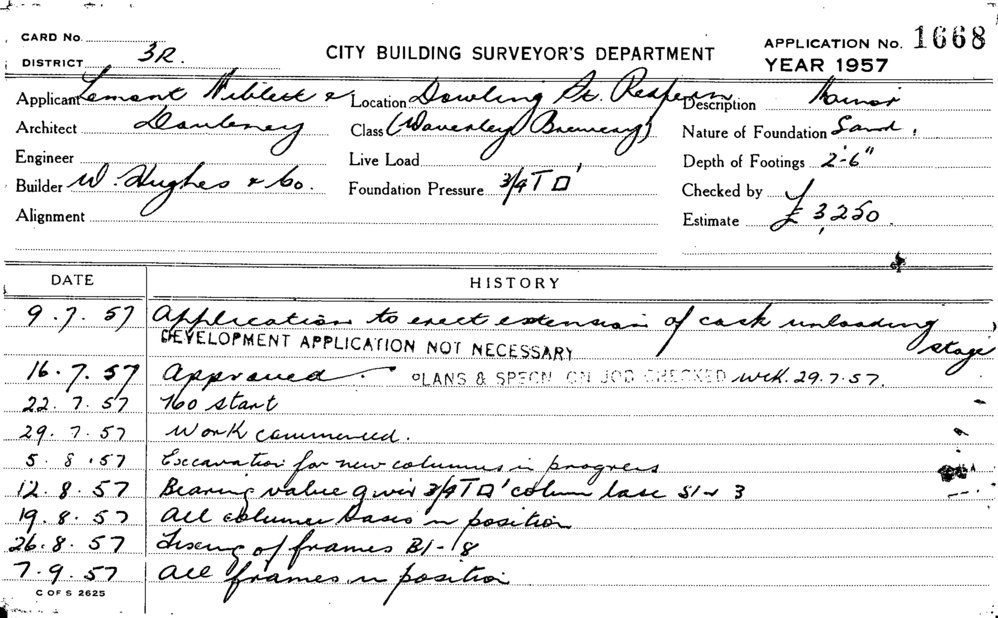 CARD No.
DISTRICT 3R.
CITY BUILDING SURVEYOR'S DEPARTMENT
APPLICATION No. 1668
YEAR 1957
Applicant Lemont Niblett &
Architect
Engineer
Builder W. Hughes & Co.
Alignment
Location Dowling St. Redfern
Class (Waverley Brewery)
Live Load
Foundation Pressure 3/4 T □'
Description Minor
Nature of Foundation Sand.
Depth of Footings 2'-6"
Checked by
Estimate £3,250.
DATE HISTORY
9.7.57 Application to erect extension of cask unloading stage
DEVELOPMENT APPLICATION NOT NECESSARY
16.7.57 Approved. PLANS & SPECN ON JOB CHECKED 29.7.57.
22.7.57 No start
29.7.57 Work commenced.
5.8.57 Excavation for new columns in progress
12.8.57 Bearing value given 3/4 T □' column base S1 & 3
19.8.57 All column bases in position
26.8.57 Fixing of frames B1-8
7.9.57 All frames in position
C OF S 2625